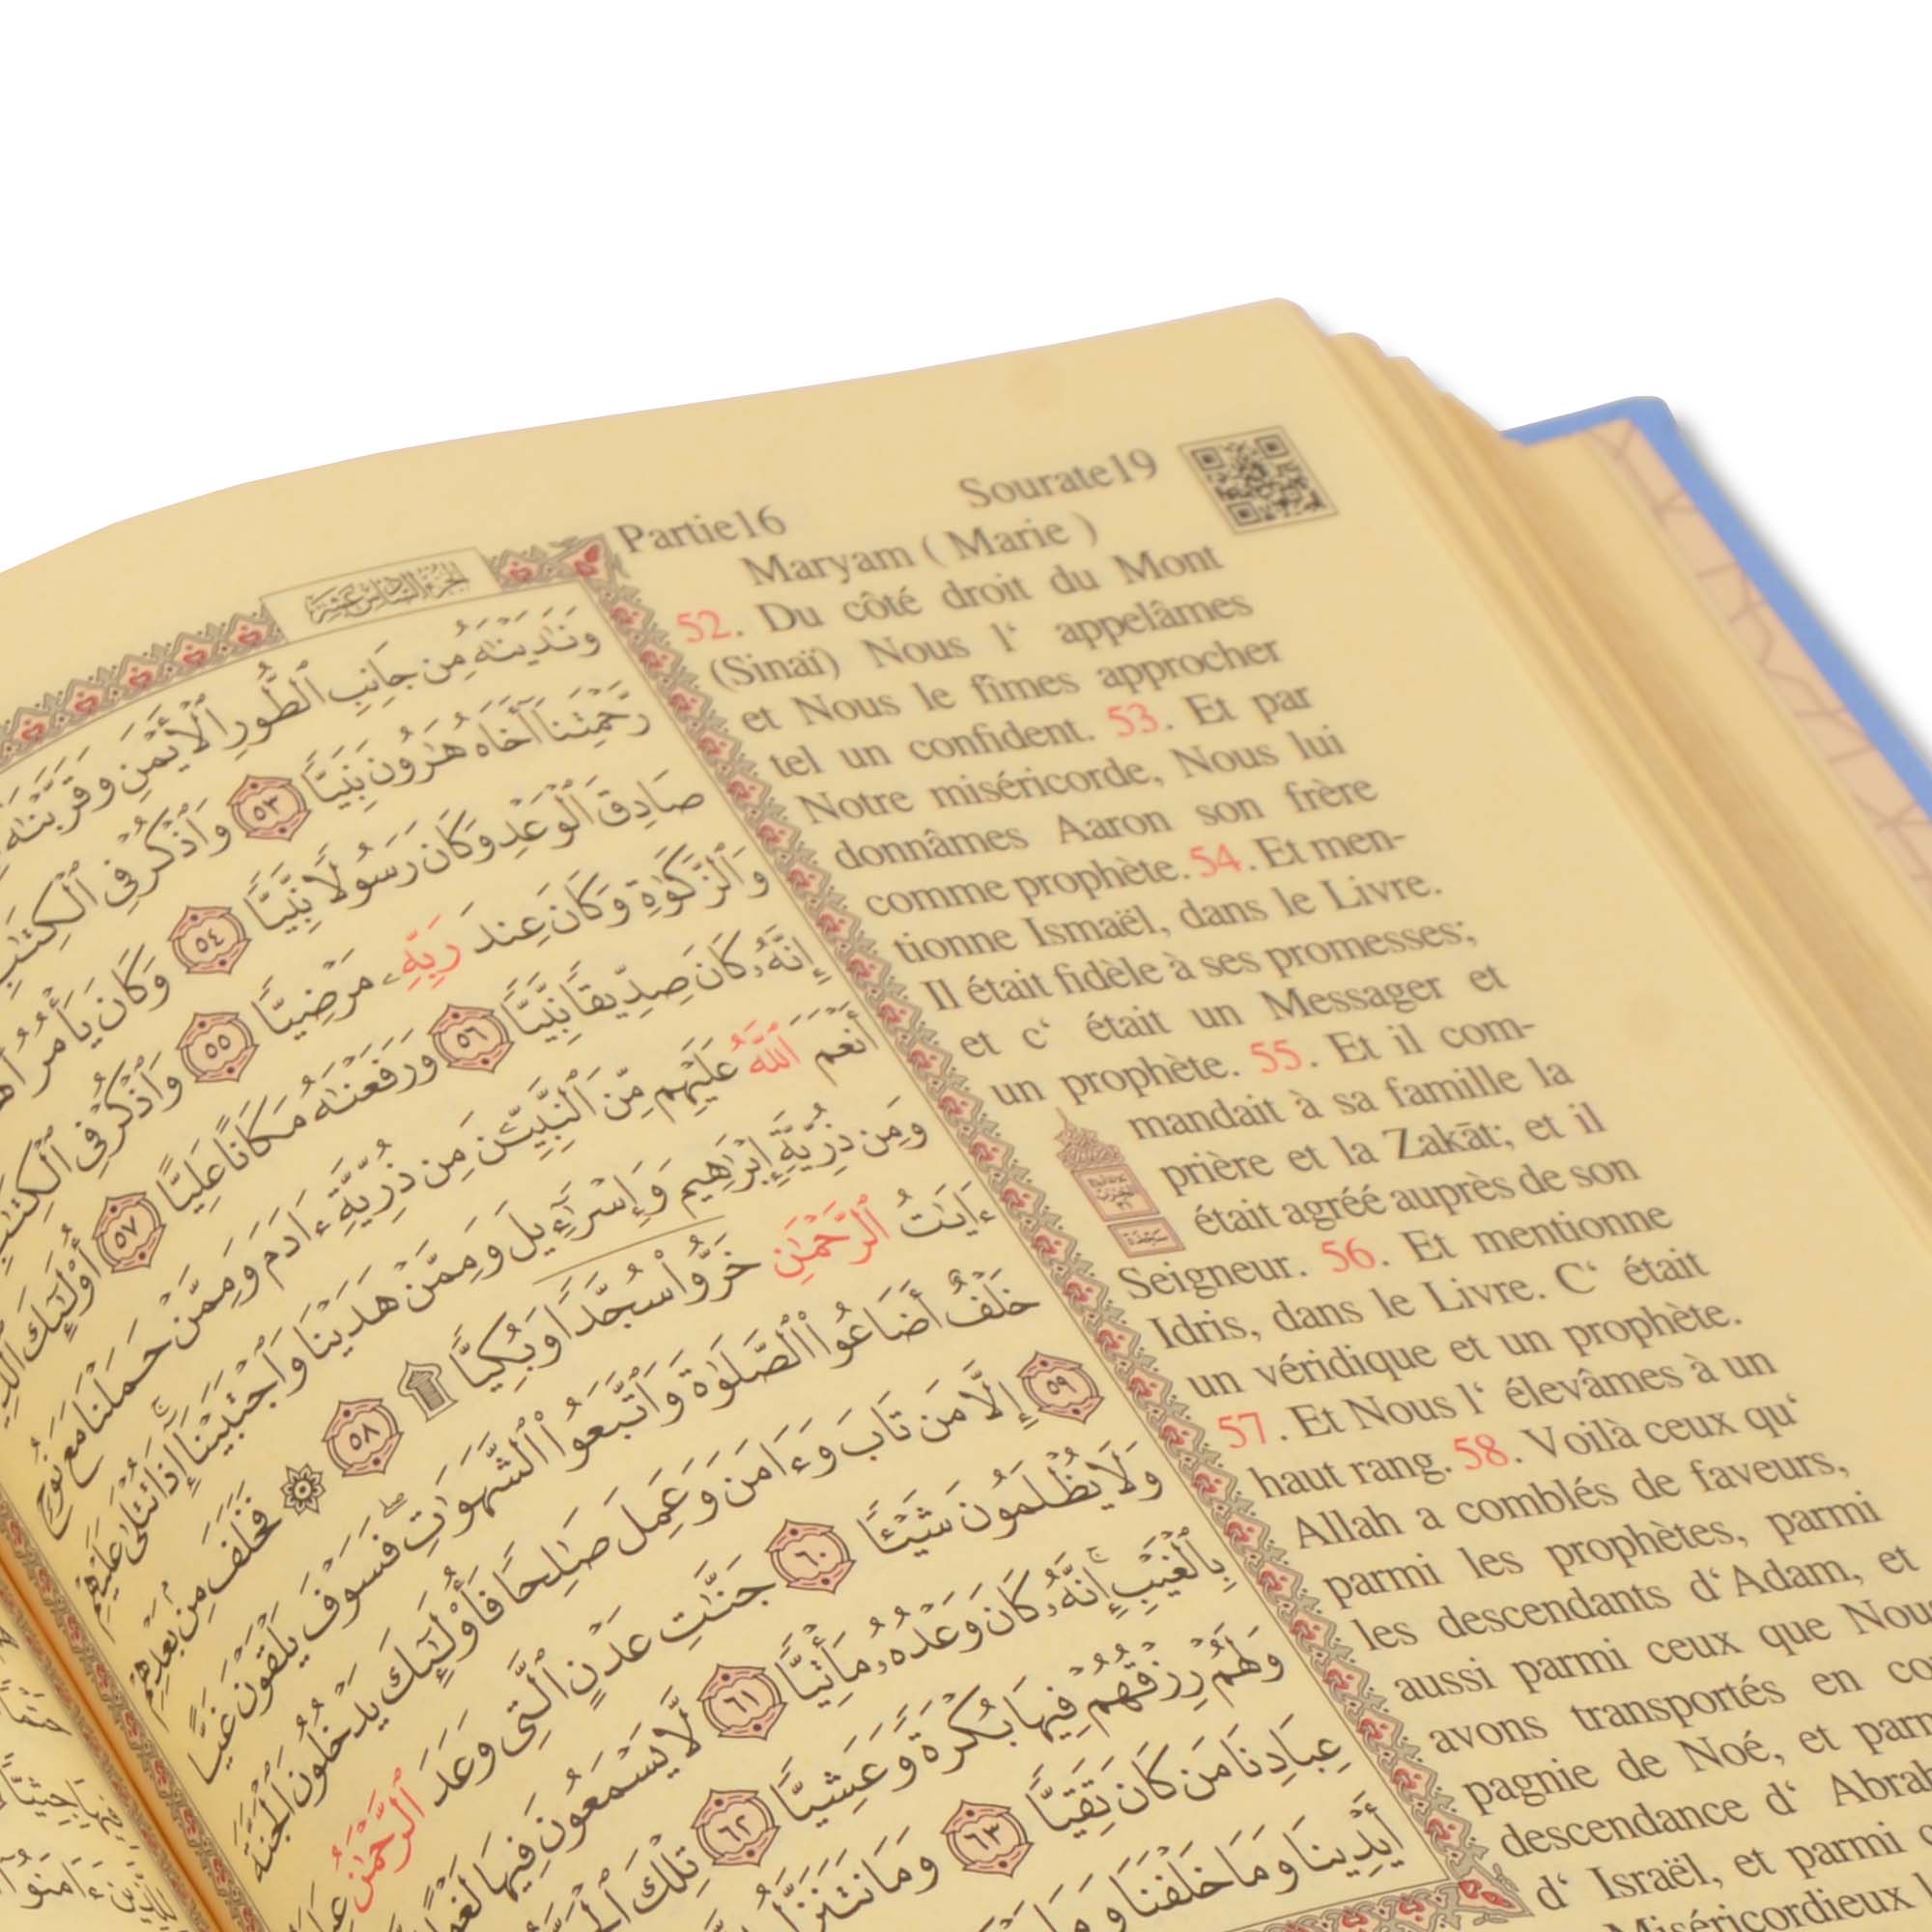 Partie16 Sourate19
Maryam ( Marie )
52. Du côté droit du Mont
(Sinaï) Nous l‘ appelâmes
et Nous le fîmes approcher
tel un confident. 53. Et par
Notre miséricorde, Nous lui
donnâmes Aaron son frère
comme prophète. 54. Et men-
tionne Ismaël, dans le Livre.
Il était fidèle à ses promesses;
et c‘ était un Messager et
un prophète. 55. Et il com-
mandait à sa famille la
prière et la Zakāt; et il
était agréé auprès de son
Seigneur. 56. Et mentionne
Idris, dans le Livre. C‘ était
un véridique et un prophète.
57. Et Nous l‘ élevâmes à un
haut rang. 58. Voilà ceux qu‘
Allah a comblés de faveurs,
parmi les prophètes, parmi
les descendants d‘Adam, et
aussi parmi ceux que Nous
avons transportés en
pagnie de Noé, et
descendance d‘
d‘ Israël, et parmi
Miséricordieux
الجزء السادس عشر
وَنَٰدَيْنَٰهُ مِن جَانِبِ ٱلطُّورِ ٱلْأَيْمَنِ وَقَرَّبْنَٰهُ
رَّحْمَتِنَآ أَخَاهُ هَٰرُونَ نَبِيًّا ٥٣ وَٱذْكُرْ فِى ٱلْكِتَٰبِ
صَادِقَ ٱلْوَعْدِ وَكَانَ رَسُولًا نَّبِيًّا ٥٤ وَكَانَ يَأْمُرُ
وَٱلزَّكَوٰةِ وَكَانَ عِندَ رَبِّهِۦ مَرْضِيًّا ٥٥ وَٱذْكُرْ فِى ٱلْكِتَٰبِ
إِنَّهُۥ كَانَ صِدِّيقًا نَّبِيًّا ٥٦ وَرَفَعْنَٰهُ مَكَانًا عَلِيًّا ٥٧ أُو۟لَٰٓئِكَ
أَنْعَمَ ٱللَّهُ عَلَيْهِم مِّنَ ٱلنَّبِيِّۦنَ مِن ذُرِّيَّةِ ءَادَمَ وَمِمَّنْ حَمَلْنَا مَعَ نُوحٍ
وَمِن ذُرِّيَّةِ إِبْرَٰهِيمَ وَإِسْرَٰٓءِيلَ وَمِمَّنْ هَدَيْنَا وَٱجْتَبَيْنَآ إِذَا تُتْلَىٰ عَلَيْهِمْ
ءَايَٰتُ ٱلرَّحْمَٰنِ خَرُّوا۟ سُجَّدًا وَبُكِيًّا ۩ ٥٨ ۞ فَخَلَفَ مِنۢ بَعْدِهِمْ
خَلْفٌ أَضَاعُوا۟ ٱلصَّلَوٰةَ وَٱتَّبَعُوا۟ ٱلشَّهَوَٰتِ فَسَوْفَ يَلْقَوْنَ غَيًّا
٥٩ إِلَّا مَن تَابَ وَءَامَنَ وَعَمِلَ صَٰلِحًا فَأُو۟لَٰٓئِكَ يَدْخُلُونَ ٱلْجَنَّةَ
وَلَا يُظْلَمُونَ شَيْـًٔا ٦٠ جَنَّٰتِ عَدْنٍ ٱلَّتِى وَعَدَ ٱلرَّحْمَٰنُ
بِٱلْغَيْبِ إِنَّهُۥ كَانَ وَعْدُهُۥ مَأْتِيًّا ٦١ لَّا يَسْمَعُونَ فِيهَا
وَلَهُمْ رِزْقُهُمْ فِيهَا بُكْرَةً وَعَشِيًّا ٦٢ تِلْكَ
عِبَادِنَا مَن كَانَ تَقِيًّا ٦٣ وَمَا نَتَنَزَّلُ
أَيْدِينَا وَمَا خَلْفَنَا